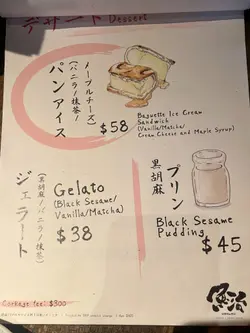 デザート Dessert
パンアイス
(バニラ/抹茶/
メープルチーズ)
$58
Baguette Ice Cream
Sandwich
(Vanilla/Matcha/
Cream Cheese and Maple Syrup)
ジェラート
(黒胡麻/バニラ/抹茶)
Gelato
(Black Sesame/
Vanilla/Matcha)
$38
プリン
黒胡麻
Black Sesame
Pudding
$45
Corkage fee: $300
魚治